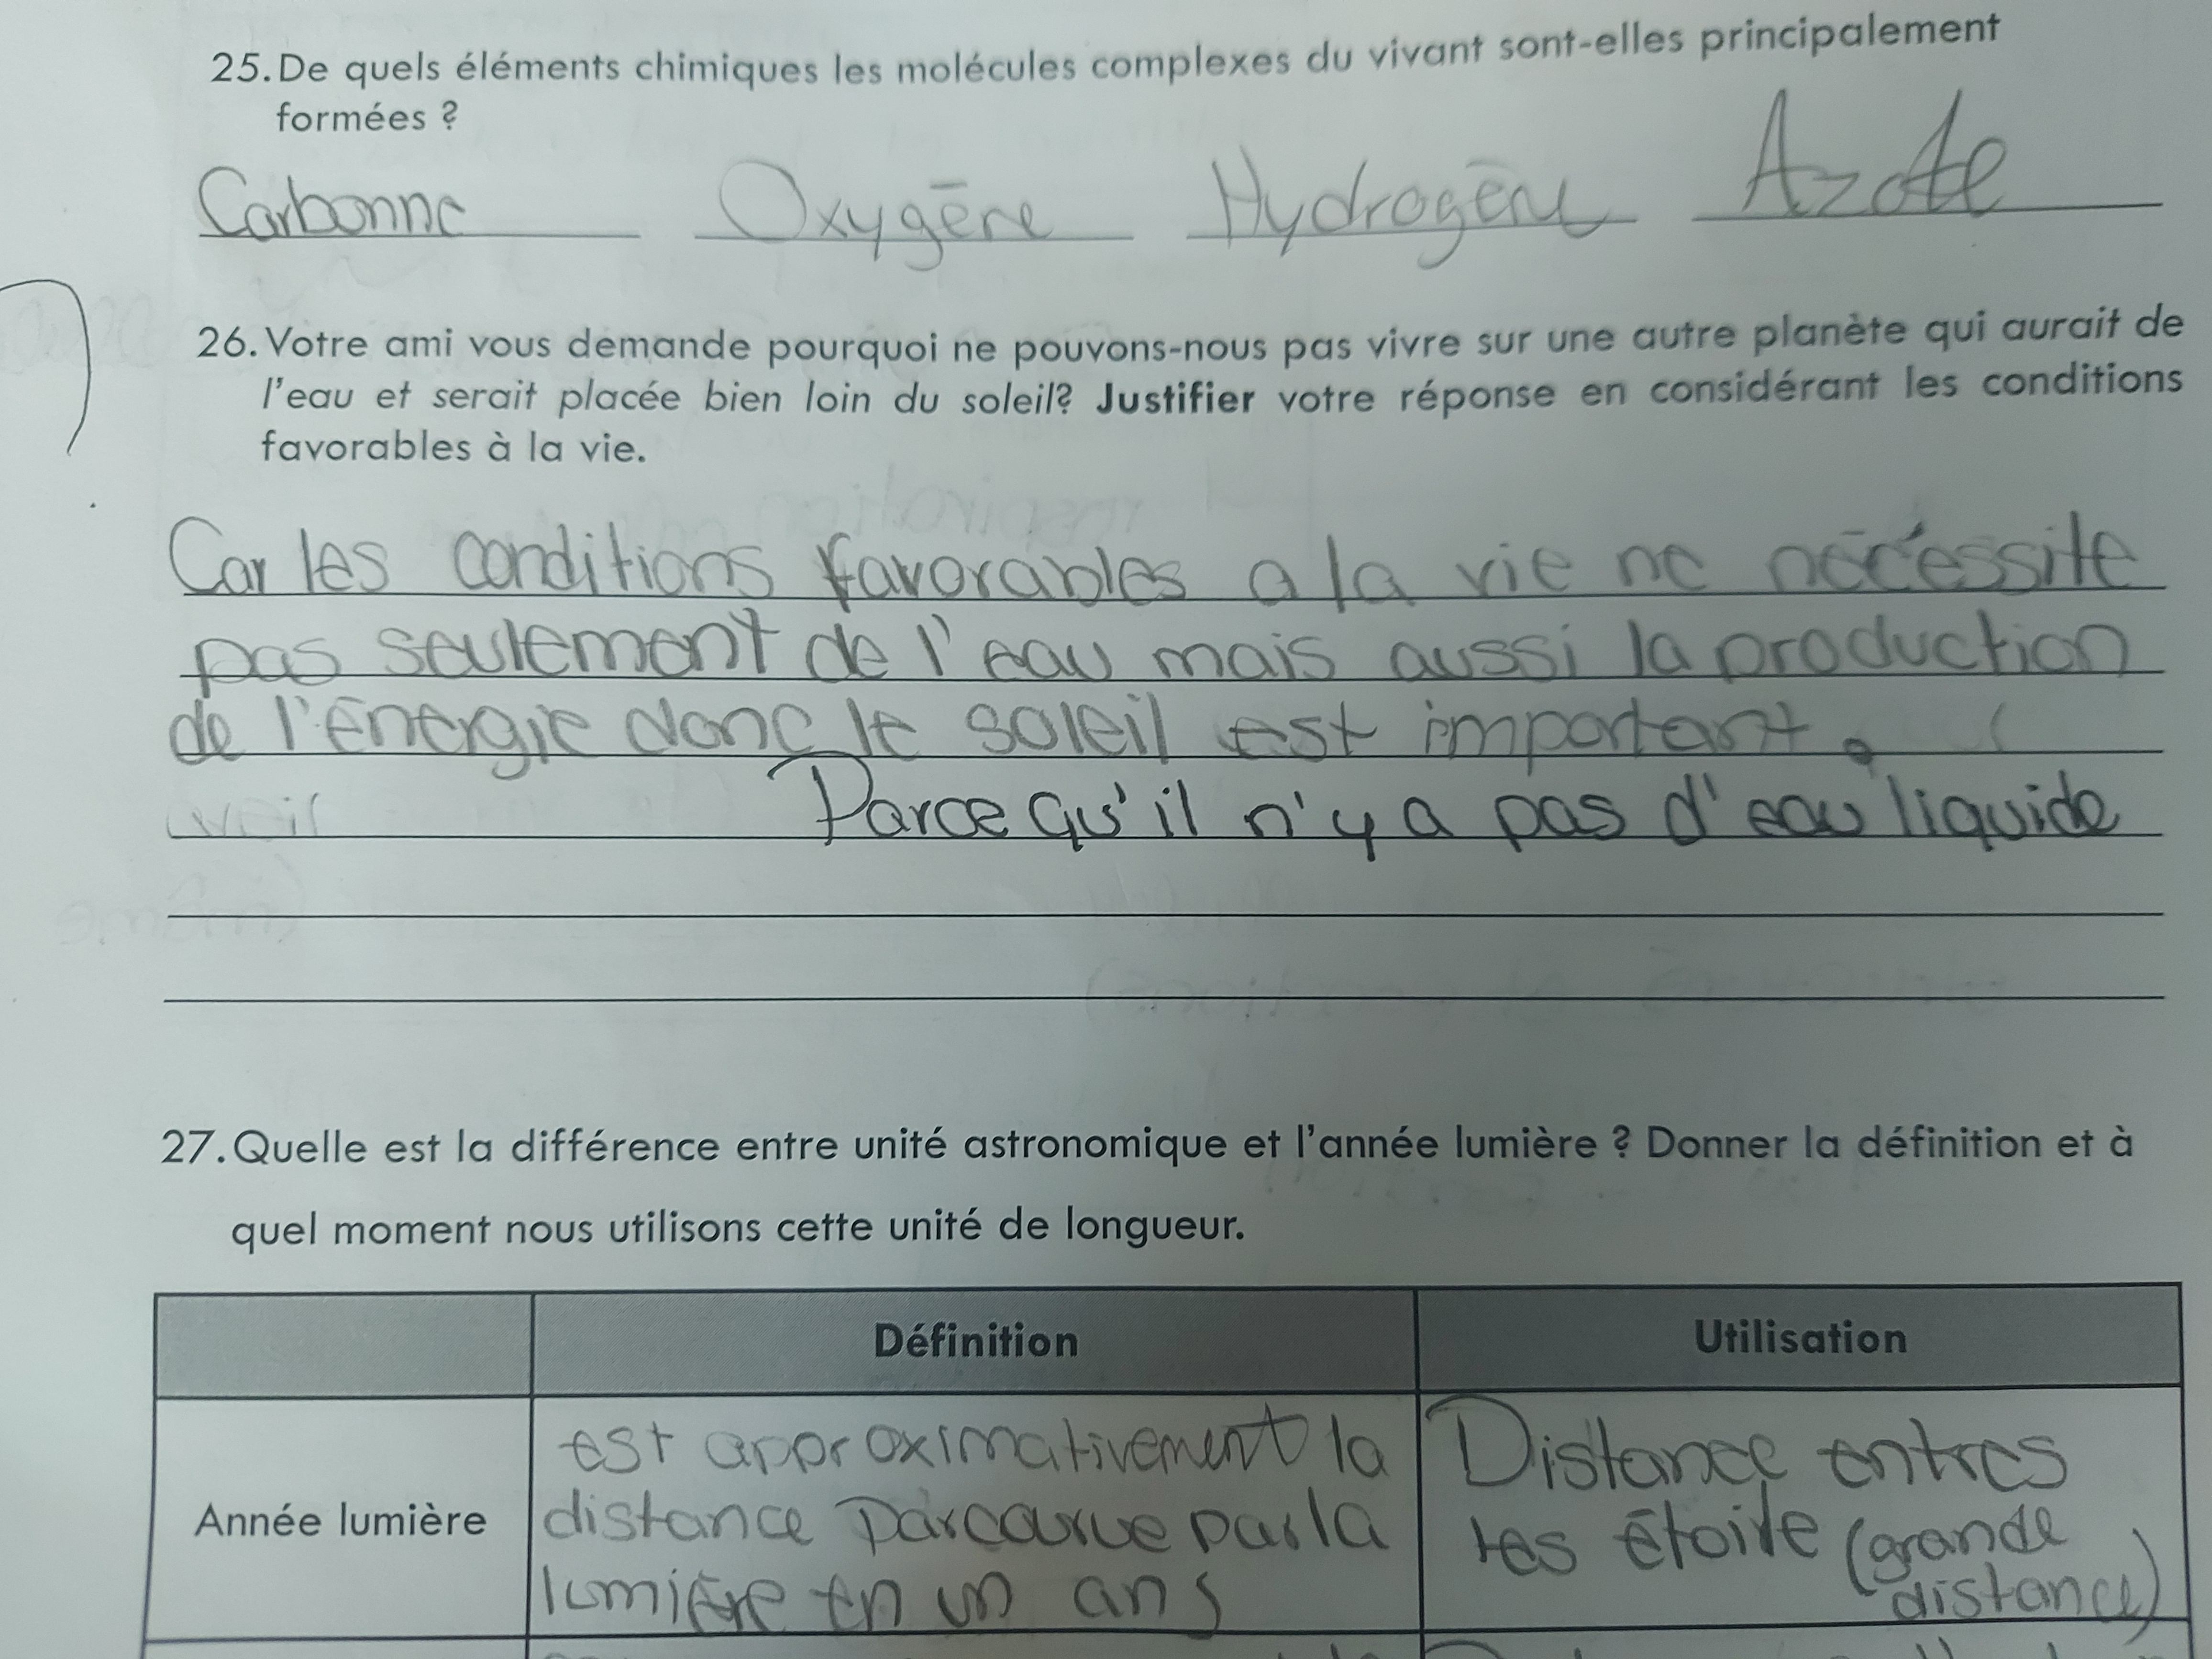 25. De quels éléments chimiques les molécules complexes du vivant sont-elles principalement
formées ?
Carbonne Oxygēne Hydrogēne Azote
26. Votre ami vous demande pourquoi ne pouvons-nous pas vivre sur une autre planète qui aurait de
l'eau et serait placée bien loin du soleil? Justifier votre réponse en considérant les conditions
favorables à la vie.
Car les conditions favorables a la vie ne nécéssite
pas seulement de l'eau mais aussi la production
de l'énergie donc le soleil est important.
Parce qu'il n'y a pas d'eau liquide
27. Quelle est la différence entre unité astronomique et l'année lumière ? Donner la définition et à
quel moment nous utilisons cette unité de longueur.
Définition Utilisation
Année lumière
est approximativement la
distance parcourue par la
lumière en un ans
Distance entres
les étoile (grande
distance)